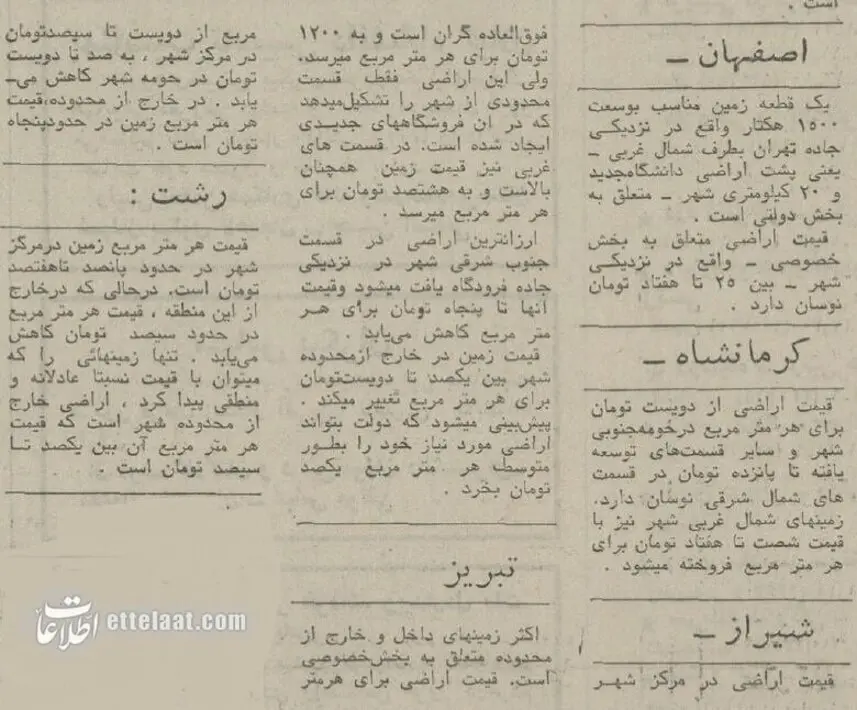 است .
اصفهان ــ
یک قطعه زمین مناسب بوسعت
۱۵۰۰ هکتار واقع در نزدیکی
جاده تهران بطرف شمال غربی ــ
یعنی پشت اراضی دانشگاه‌جدید
و ۲۰ کیلومتری شهر ــ متعلق به
بخش دولتی است .
قیمت اراضی متعلق به بخش
خصوصی ــ واقع در نزدیکی
شهر ــ بین ۲۵ تا هفتاد تومان
نوسان دارد .
کرمانشاه ــ
قیمت اراضی از دویست تومان
برای هر متر مربع درحومه‌جنوبی
شهر و سایر قسمت‌های توسعه
یافته تا پانزده تومان در قسمت
های شمال شرقی نوسان دارد.
زمینهای شمال غربی شهر نیز با
قیمت شصت تا هفتاد تومان برای
هر متر مربع فروخته میشود .
شیراز ــ
قیمت اراضی در مرکز شهر
فوق‌العاده گران است و به ۱۲۰۰
تومان برای هر متر مربع میرسد.
ولی این اراضی فقط قسمت
محدودی از شهر را تشکیل‌میدهد
که در آن فروشگاههای جدیدی
ایجاد شده است. در قسمت های
غربی نیز قیمت زمین همچنان
بالاست و به هشتصد تومان برای
هر متر مربع میرسد .
ارزانترین اراضی در قسمت
جنوب شرقی شهر در نزدیکی
جاده فرودگاه یافت میشود وقیمت
آنها تا پنجاه تومان برای هر
متر مربع کاهش می‌یابد .
قیمت زمین در خارج ازمحدوده
شهر بین یکصد تا دویست‌تومان
برای هر متر مربع تغییر میکند .
پیش‌بینی میشود که دولت بتواند
اراضی مورد نیاز خود را بطور
متوسط هر متر مربع یکصد
تومان بخرد .
تبریز
اکثر زمینهای داخل و خارج از
محدوده متعلق به بخش‌خصوصی
است. قیمت اراضی برای هرمتر
مربع از دویست تا سیصدتومان
در مرکز شهر ، به صد تا دویست
تومان در حومه شهر کاهش می‌ــ
یابد . در خارج از محدوده،قیمت
هر متر مربع زمین در حدودپنجاه
تومان است .
رشت :
قیمت هر متر مربع زمین درمرکز
شهر در حدود پانصد تاهفتصد
تومان است. درحالی که درخارج
از این منطقه ، قیمت هر متر مربع
در حدود سیصد تومان کاهش
می‌یابد . تنها زمینهائی را که
میتوان با قیمت نسبتا عادلانه و
منطقی پیدا کرد ، اراضی خارج
از محدوده شهر است که قیمت
هر متر مربع آن بین یکصد تــا
سیصد تومان است .
اطلاعات ettelaat.com